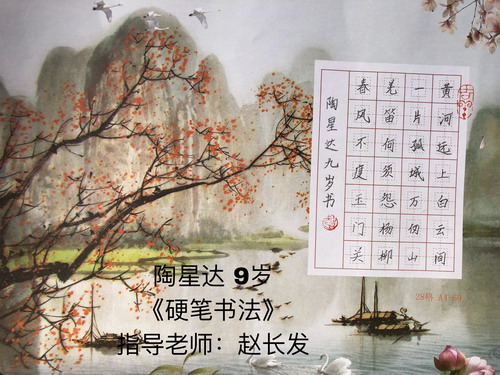 黄河远上白云间
一片孤城万仞山
羌笛何须怨杨柳
春风不度玉门关
陶星达九岁书
28格 A4-60
陶星达 9岁
《硬笔书法》
指导老师：赵长发